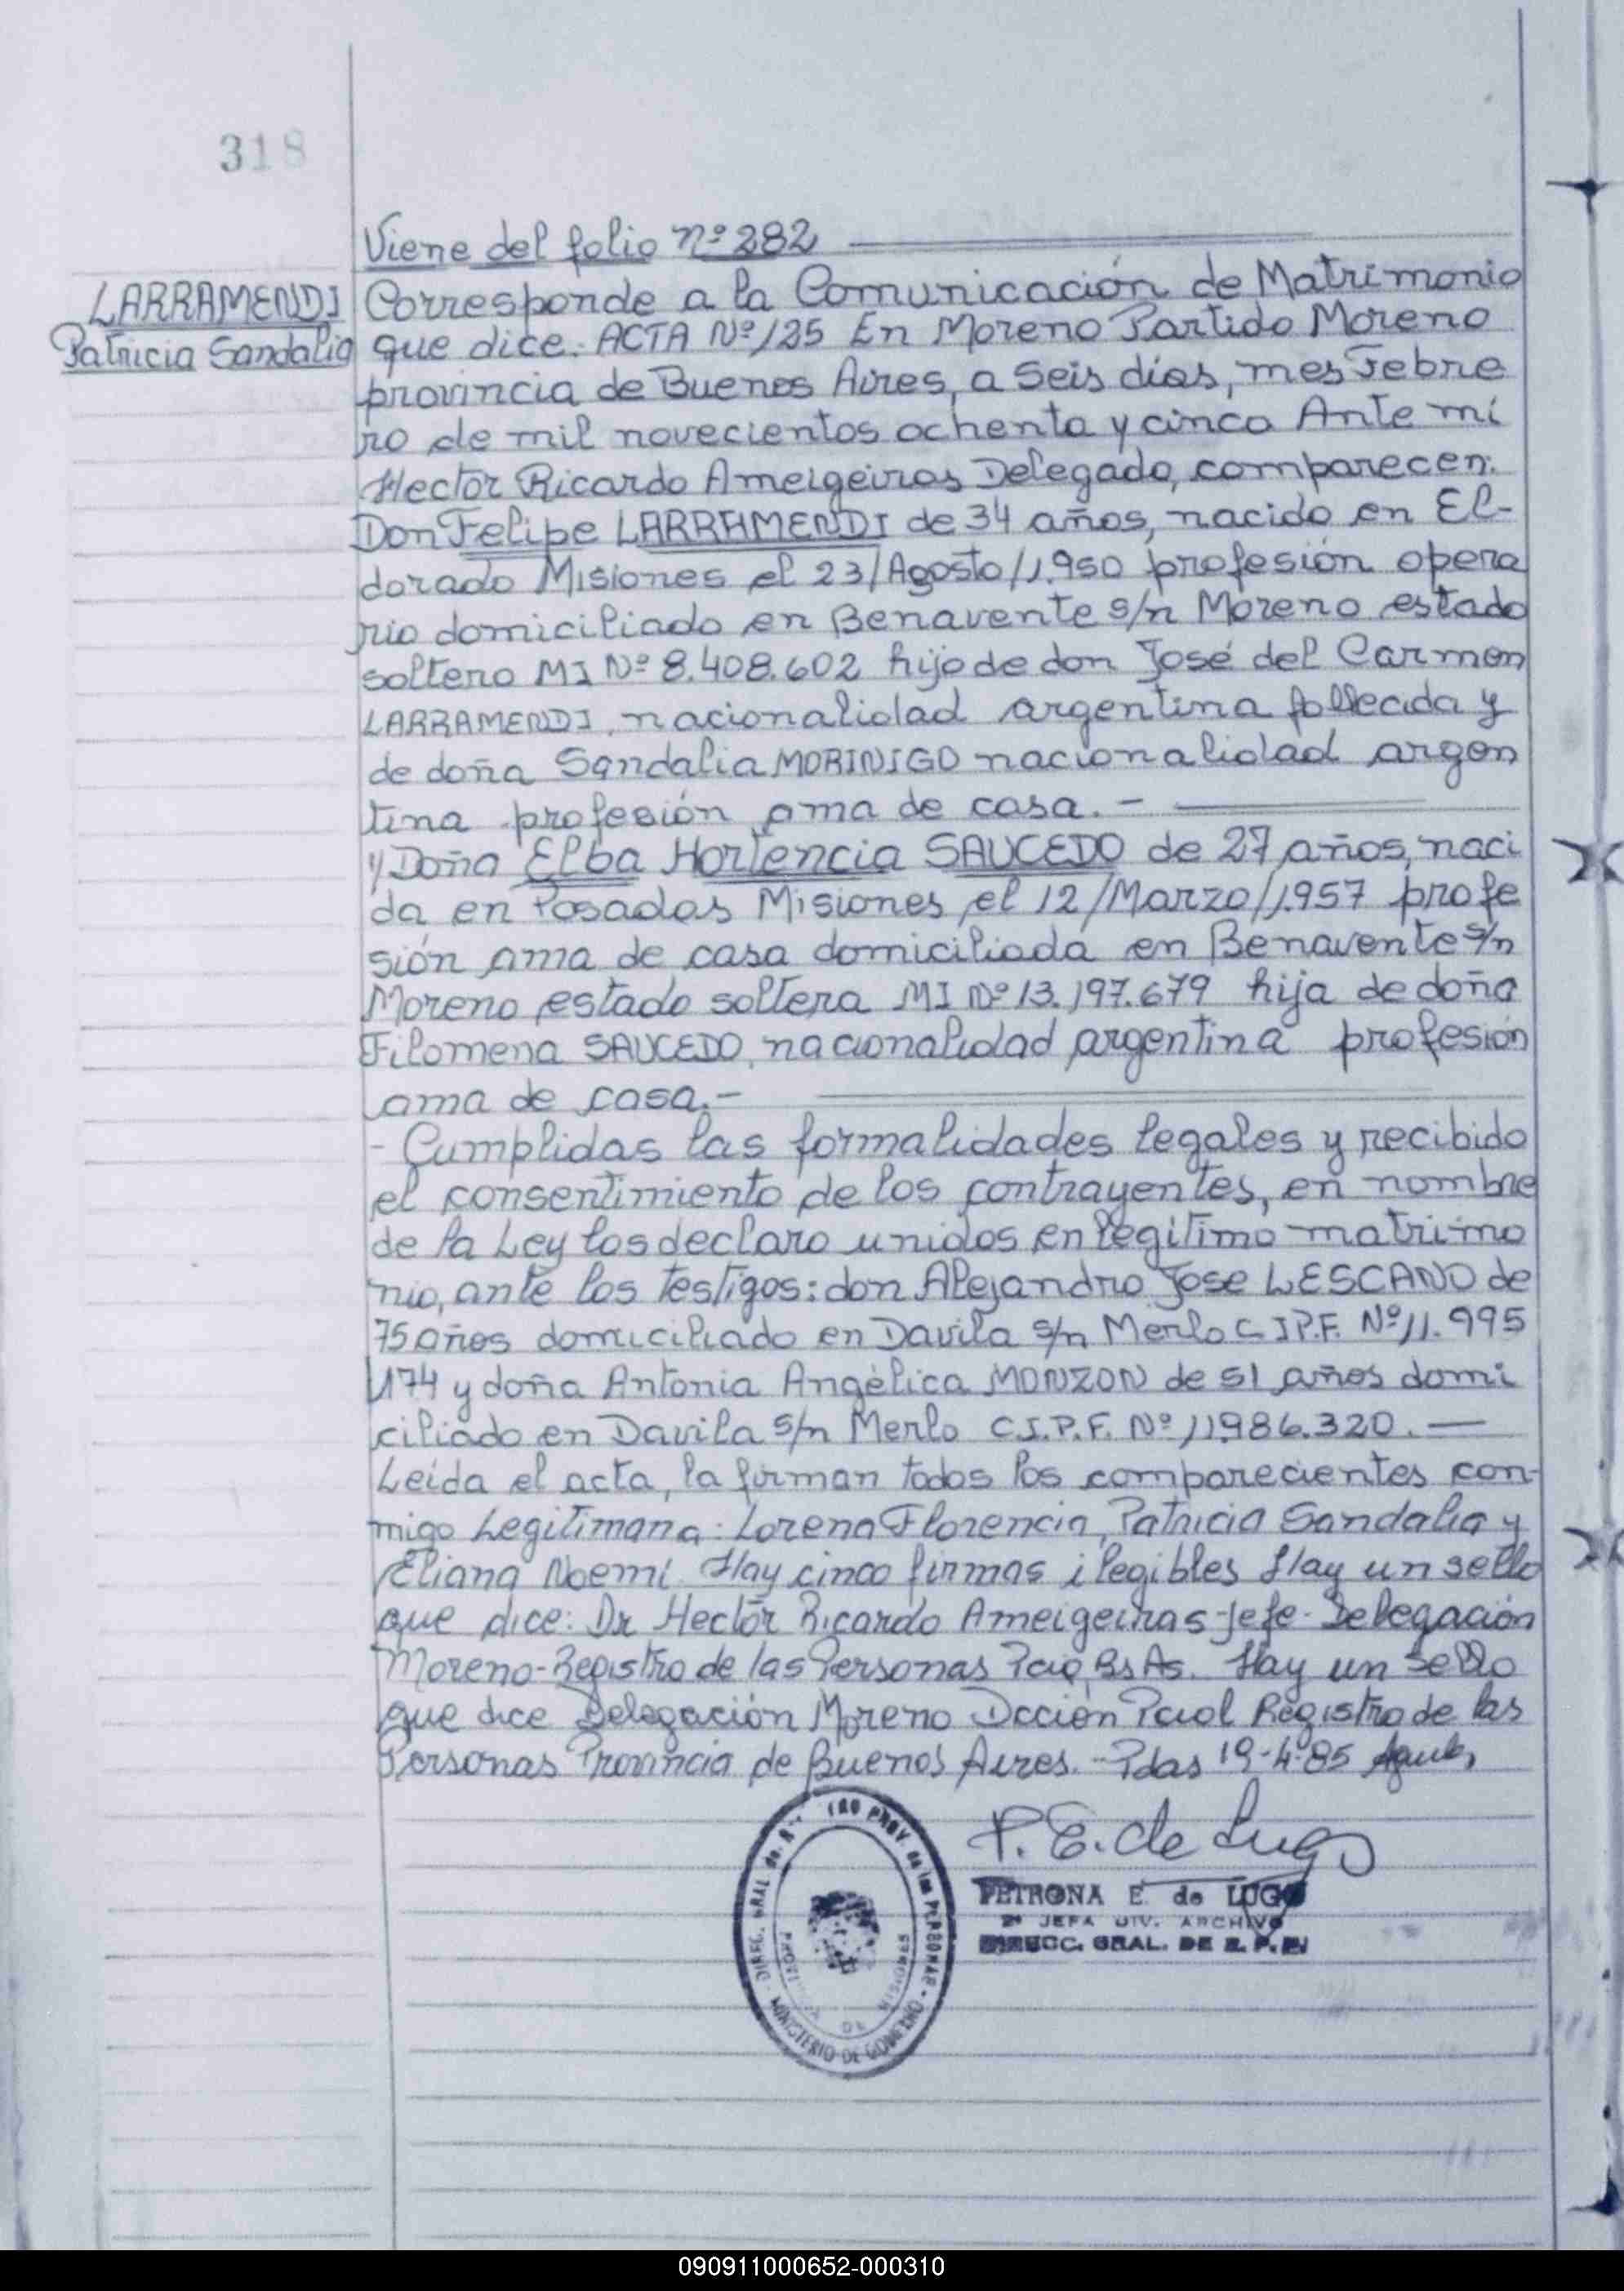 318
Viene del folio Nº 282
LARRAMENDI
Patricia Sandalia
Corresponde a la Comunicación de Matrimonio
que dice: ACTA Nº 125 En Moreno Partido Moreno
provincia de Buenos Aires, a Seis días, mes Febre
ro de mil novecientos ochenta y cinco Ante mí
Hector Ricardo Ameigeiras Delegado, comparecen:
Don Felipe LARRAMENDI de 34 años, nacido en El-
dorado Misiones el 23/Agosto/1.950 profesión opera
rio domiciliado en Benavente s/n Moreno estado
soltero MI Nº 8.408.602 hijo de don José del Carmen
LARRAMENDI, nacionalidad argentina fallecida y
de doña Sandalia MORINIGO nacionalidad argen
tina profesión ama de casa.-
y Doña Elba Hortencia SAUCEDO de 27 años, naci
da en Posadas Misiones el 12/Marzo/1.957 profe
sión ama de casa domiciliada en Benavente s/n
Moreno estado soltera MI Nº 13.197.679 hija de doña
Filomena SAUCEDO, nacionalidad argentina profesión
ama de casa.-
- Cumplidas las formalidades legales y recibido
el consentimiento de los contrayentes, en nombre
de la Ley los declaro unidos en legítimo matrimo
nio, ante los testigos: don Alejandro Jose LESCANO de
75 años domiciliado en Davila s/n Merlo C.I.P.F. Nº 11.995
174 y doña Antonia Angélica MONZON de 51 años domi
ciliado en Davila s/n Merlo C.I.P.F. Nº 11986.320. —
Leída el acta, la firman todos los comparecientes con-
migo Legitimana: Lorena Florencia, Patricia Sandalia y
Eliana Noemí. Hay cinco firmas ilegibles Hay un sello
que dice: Dr Hector Ricardo Ameigeiras-Jefe-Delegación
Moreno-Registro de las Personas Pcia, Bs As. Hay un sello
que dice Delegación Moreno Dcción Pcial Registro de las
Personas Provincia de Buenos Aires.- Pdas 19-4-85
P. E. de Lugo
PETRONA E. de LUGO
2ª JEFA DIV. ARCHIVO
DIRECC. GRAL. DE R. P. P.
DIREC. GRAL. de PROV. de las PERSONAS - MINISTERIO DE GOBIERNO
PROVINCIA DE MISIONES
090911000652-000310